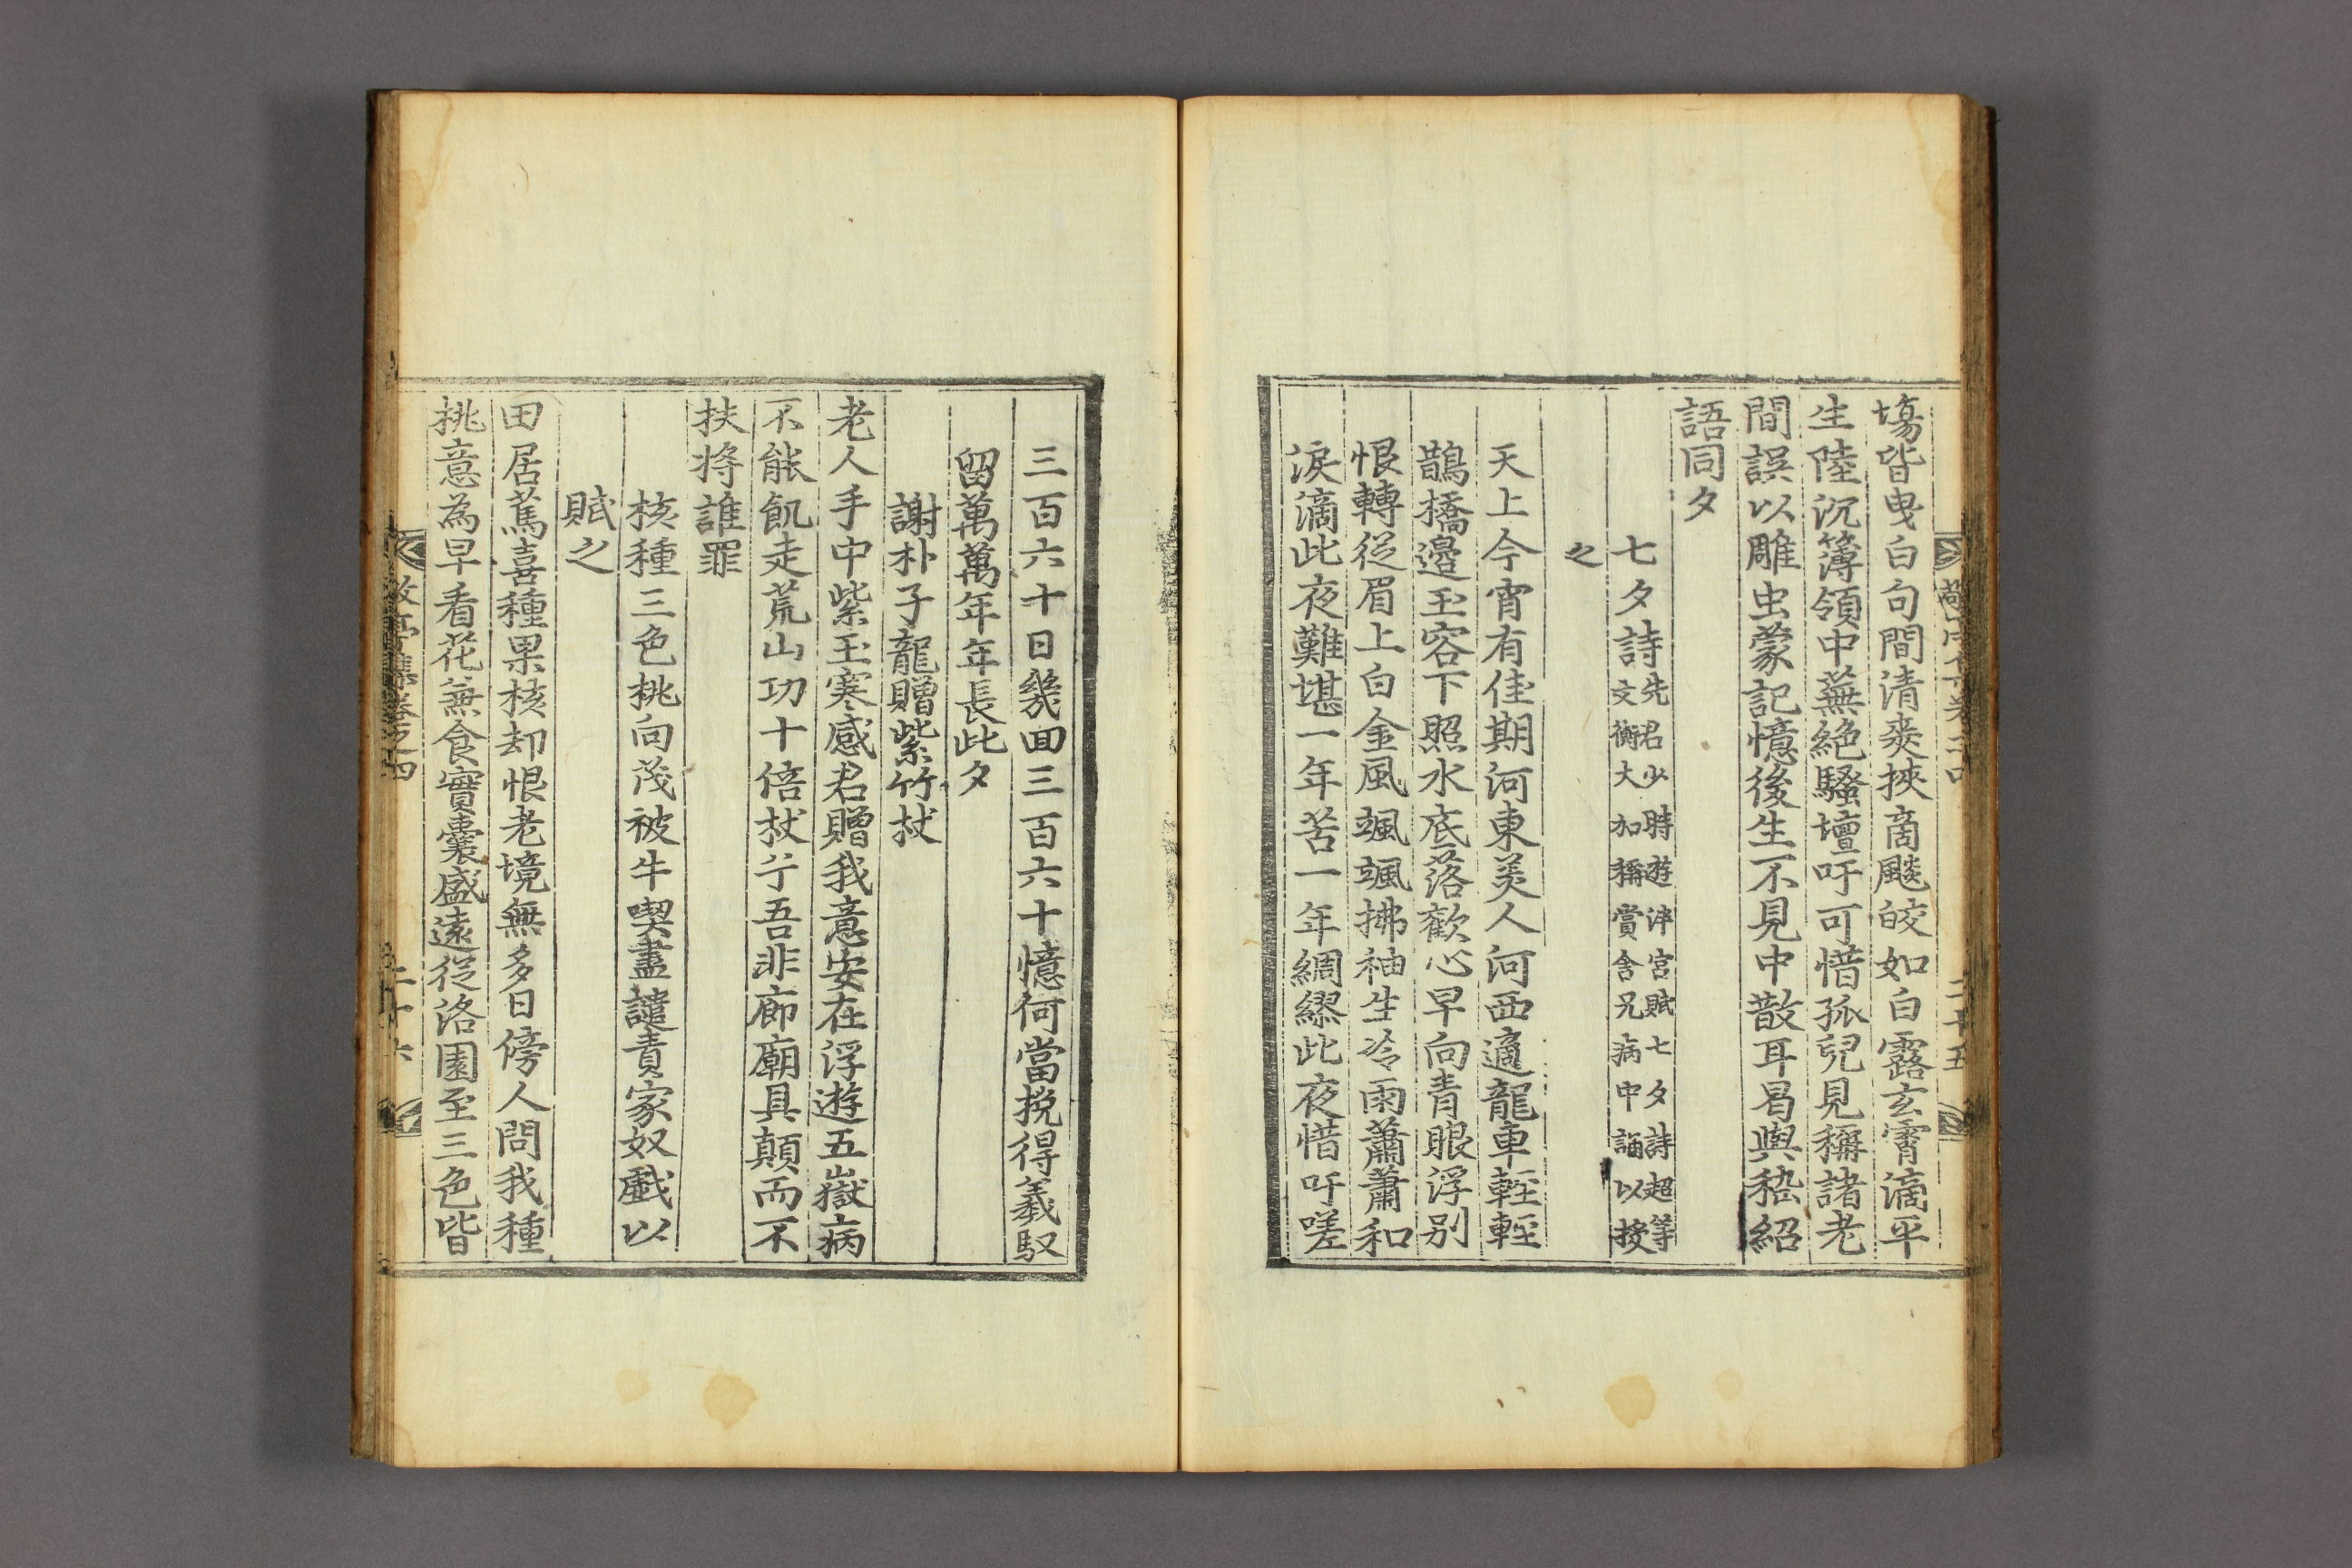 塲皆曳白句間清爽挾啇颷皎如白露玄霄滴平
生陸沉簿領中蕪絶騷壇吁可惜孤兒見稱諸老
間誤以雕虫蒙記憶後生不見中散耳曷與嵇紹
語同夕
七夕詩先君少時遊泮宮賦七夕詩超等
文衡大加稱賞舍兄病中誦以授
之
天上今宵有佳期河東美人河西適龍車輕輕
鵲橋邉玉容下照水底落歡心早向青眼浮别
恨轉從眉上白金風颯颯拂袖生冷雨蕭蕭和
淚滴此夜難堪一年苦一年綢繆此夜惜吁嗟
三百六十日幾回三百六十憶何當挽得羲馭
留萬萬年年長此夕
謝朴子龍贈紫竹杖
老人手中紫玉寒感君贈我意安在浮遊五嶽病
不能飢走荒山功十倍杖兮吾非廊廟具顛而不
扶將誰罪
核種三色桃向茂被牛喫盡譴責家奴戱以
賦之
田居篤喜種果核却恨老境無多日傍人問我種
桃意為早看花蕪食實囊盛遠從洛園至三色皆
亭集卷之四